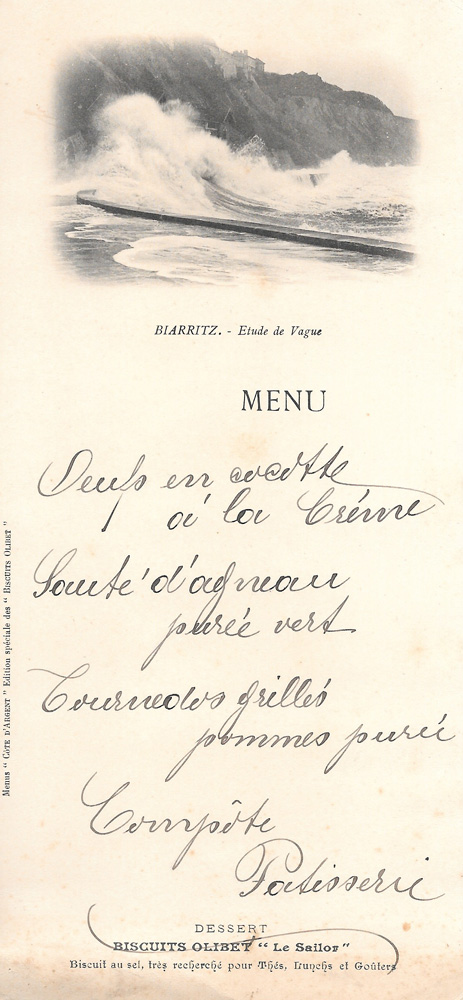 BIARRITZ. - Etude de Vague
MENU
Oeufs en cocotte
à la Crème
Sauté d'agneau
purée vert
Tournedos grillés
pommes purée
Compôte
Patisserie
DESSERT
BISCUITS OLIBET “ Le Sailor ”
Biscuit au sel, très recherché pour Thés, Lunchs et Goûters
Menus “ CÔTE D'ARGENT ” Edition spéciale des “ BISCUITS OLIBET ”